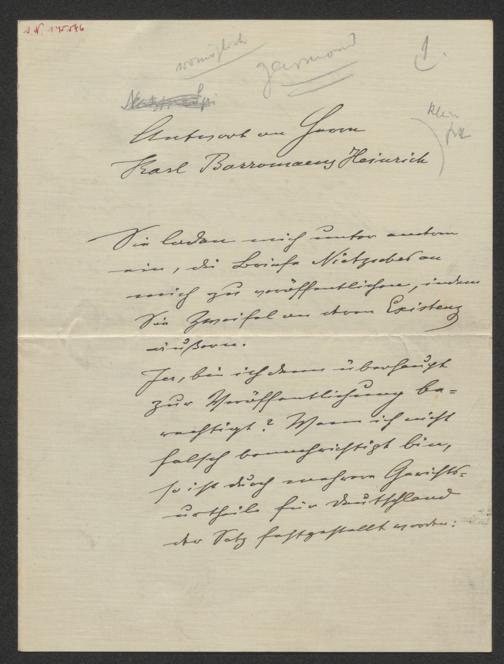 1.
Antwort an Herrn
Karl Borromaeus Heinrich
Sie laden mich unter anderm
ein, die Briefe Nietzsches an
mich zu veröffentlichen, indem
Sie Zweifel an deren Existenz
äußern.
Ja, bin ich denn überhaupt
zur Veröffentlichung be-
rechtigt? Wenn ich nicht
falsch benachrichtigt bin,
so ist durch mehrere Gerichts-
urtheile für Deutschland
der Satz festgestellt worden: